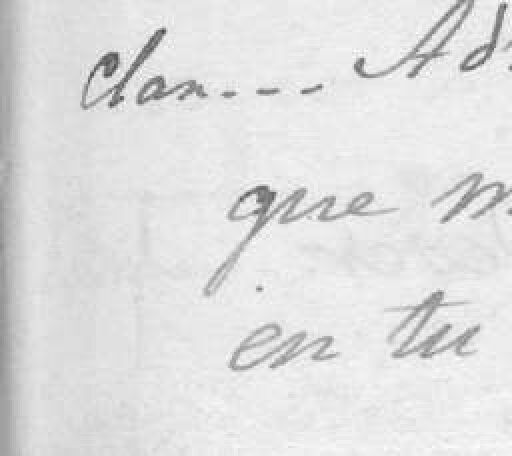 clan--- Ad
que m
en tu